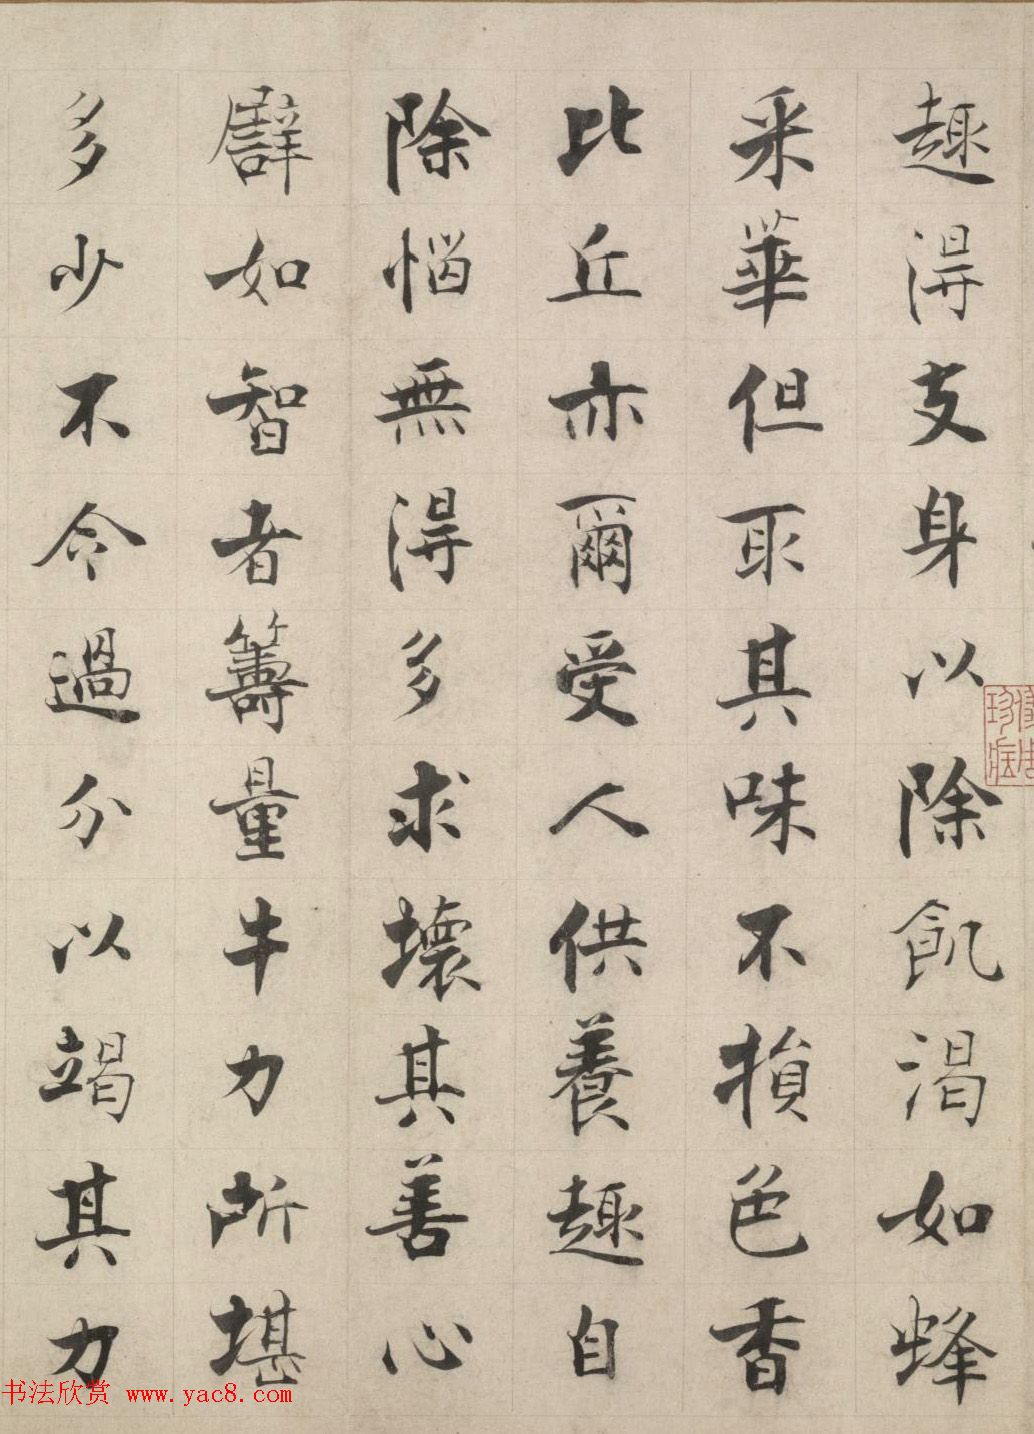 趣得支身以除飢渴如蜂
采華但取其味不損色香
比丘亦爾受人供養趣自
除惱無得多求壞其善心
譬如智者籌量牛力所堪
多少不令過分以竭其力
书法欣赏 www.yac8.com